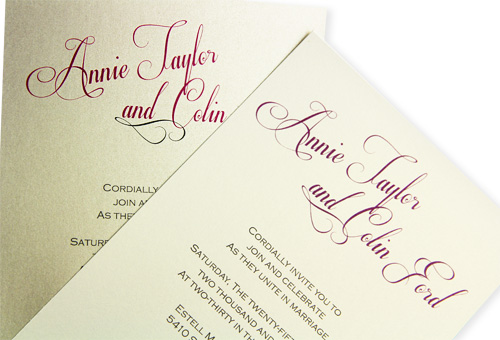 Annie Taylor
and Colin
CORDIALLY
JOIN AND
AS THEY
SATUR
Annie Taylor
and Colin Ford
CORDIALLY INVITE YOU TO
JOIN AND CELEBRATE
AS THEY UNITE IN MARRIAGE
SATURDAY, THE TWENTY-FIFT
TWO THOUSAND AN
AT TWO-THIRTY IN TH
ESTELL M
5410 S